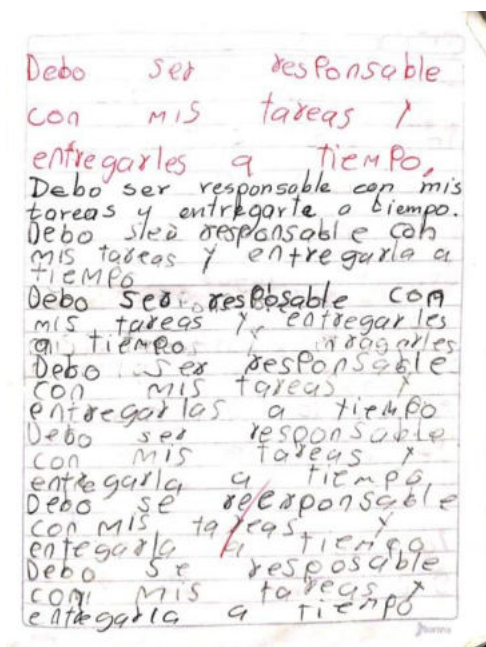 Debo ser responsable
con mis tareas y
entregarles a tiempo.
Debo ser responsable con mis
tareas y entregarla a tiempo.
Debo ser responsable con
mis tareas y entregarla a
tiempo
Debo ser resposable con
mis tareas y entregarles
a tiempo
Debo ser responsable
con mis tareas y
entregarlas a tiempo
Debo ser responsable
con mis tareas y
entregarla a tiempo
Debo se reerponsable
con mis tareas y
entegarla a tiempo
Debo se resposable
con mis tareas y
entregarla a tiempo